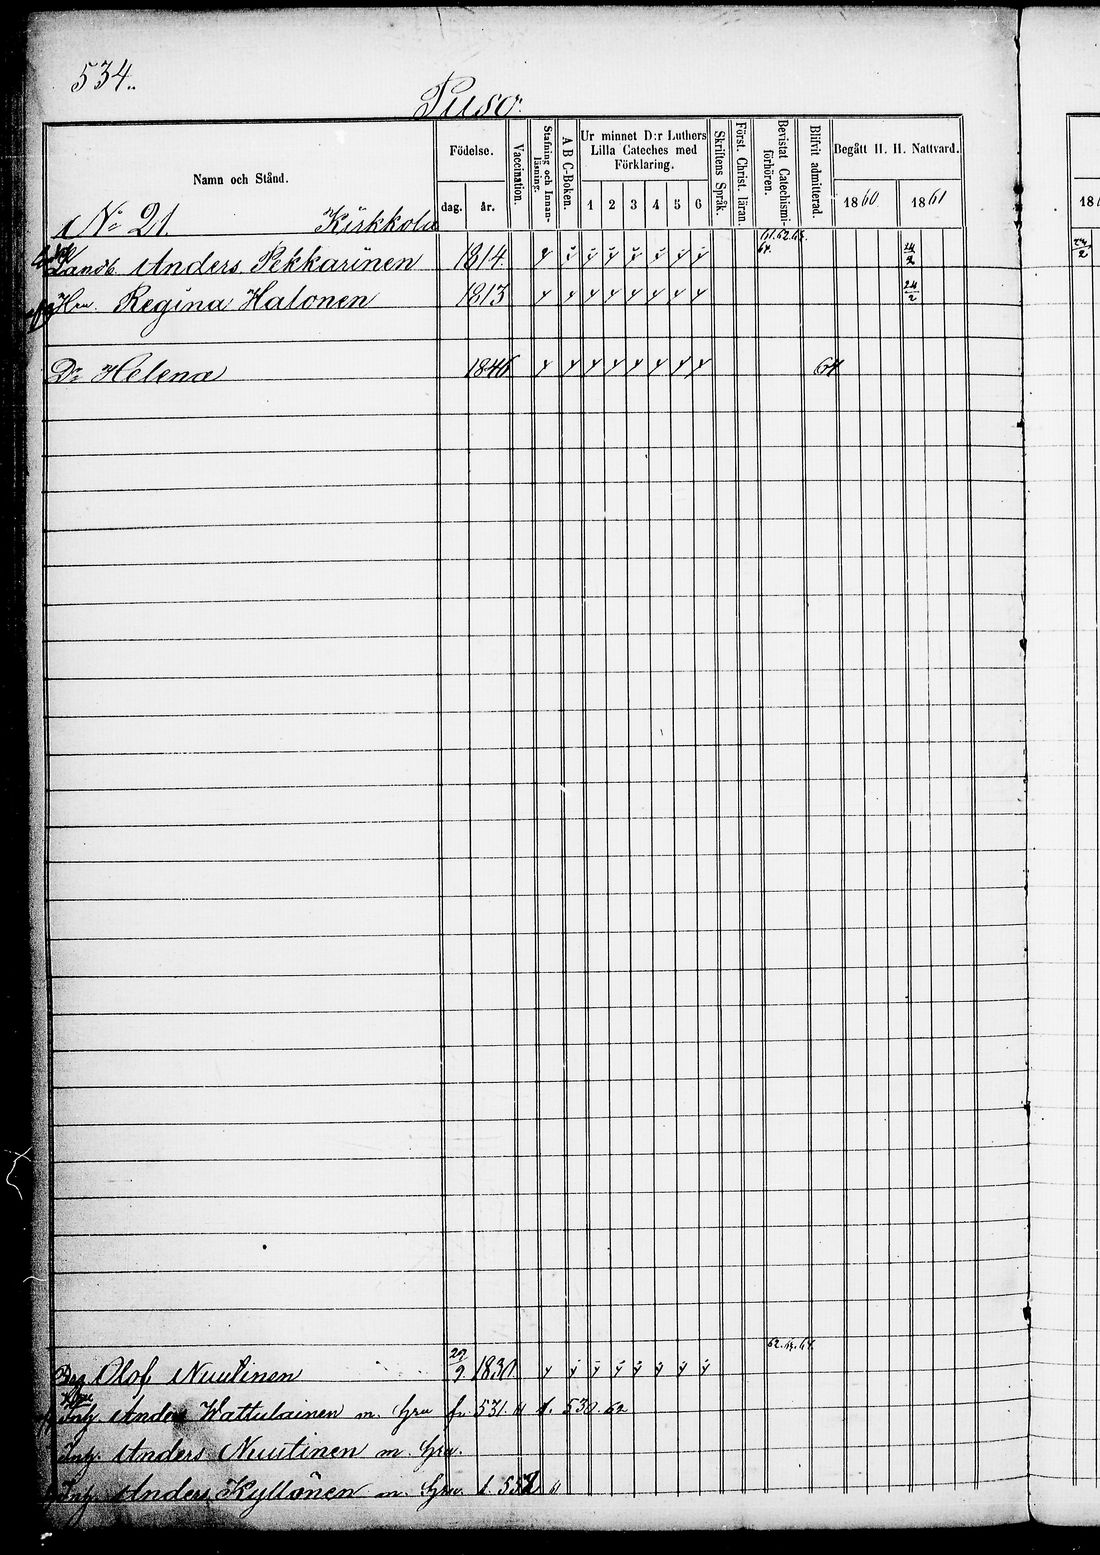 534.
Puso.
Namn och Stånd.
Födelse.
dag. år.
Vaccination.
Stafning och Innanläsning.
A B C-Boken.
Ur minnet D:r Luthers Lilla Cateches med Förklaring.
1 2 3 4 5 6
Skriftens Språk.
Först. Christ. läran.
Bevistat Catechismi förhören.
Blifvit admitterad.
Begått H. H. Nattvard.
1860 1861
No 21 Kirkkola
Landb. Anders Pekkarinen 1814 24/2
Hru. Regina Halonen 1813 24/2
Dr Helena 1846 64
62. 63. 64.
Olof Nuutinen 29/9 1830
Inh. Anders Wattulainen m. hru fr. 531. 61 t. 530. 62
Inh. Anders Nuutinen m. hru.
Inh. Anders Kyllönen m. hru t.